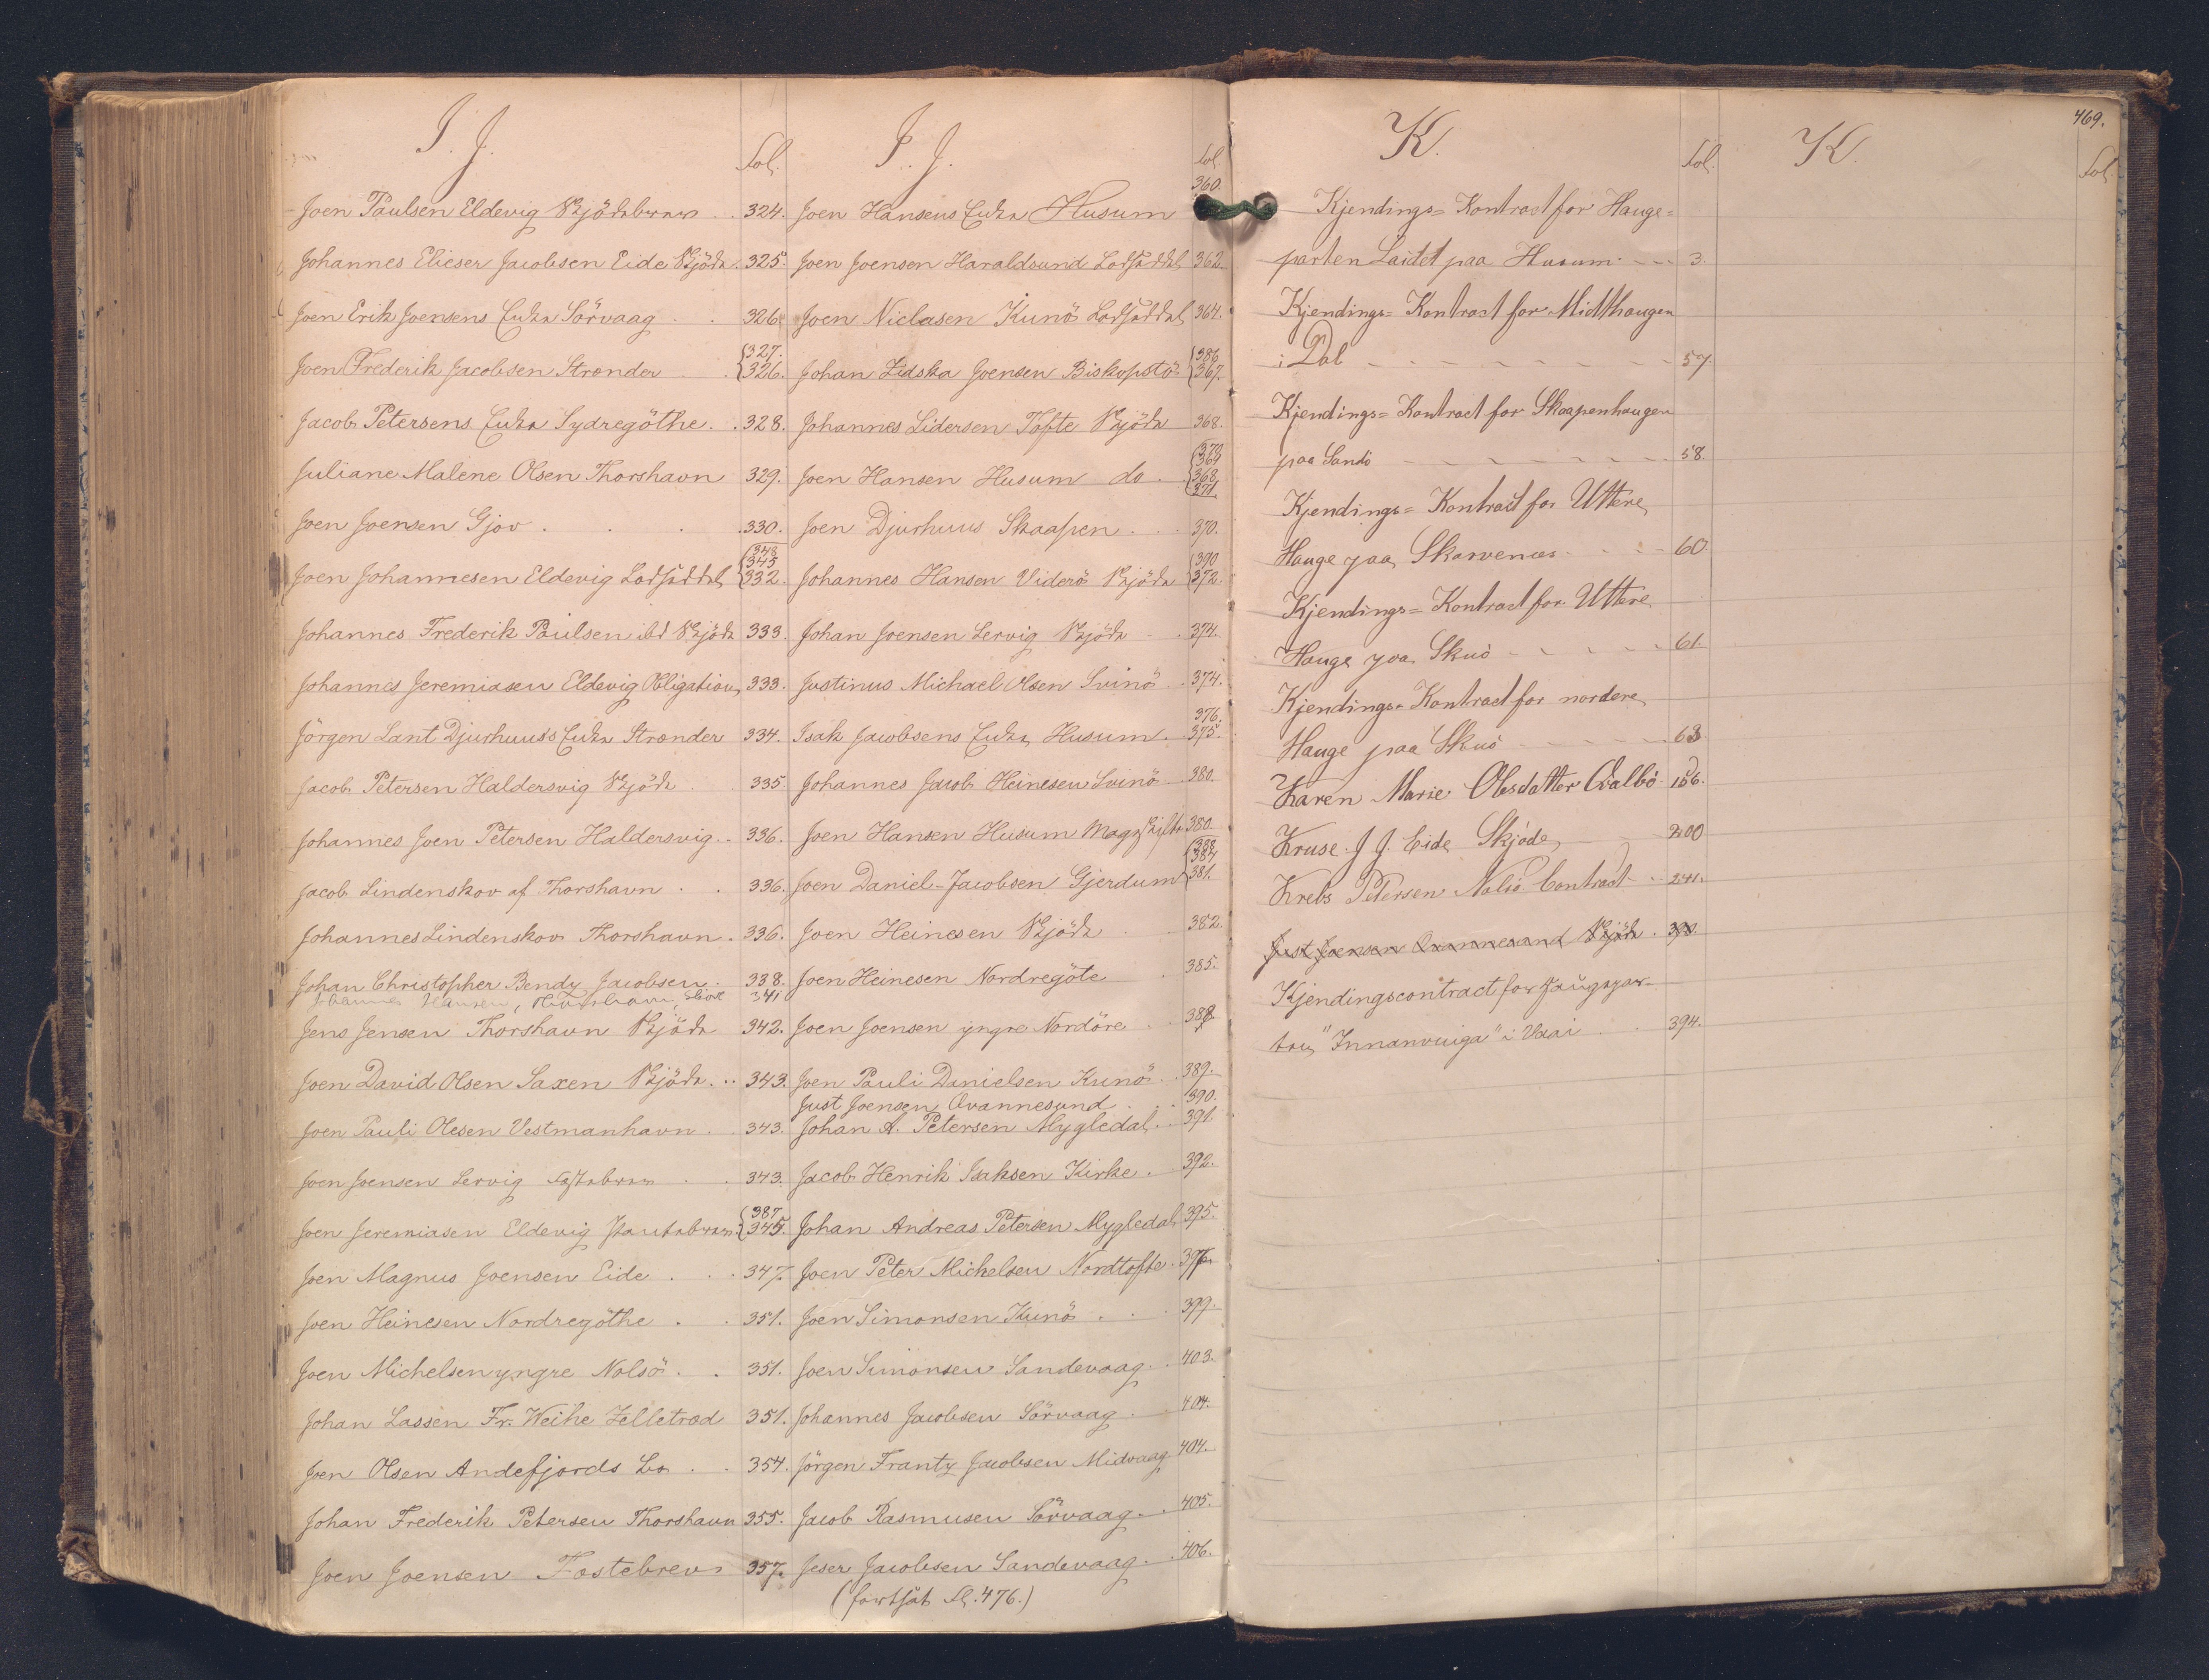 I. J.
Fol.
Joen Paulsen Eldevig Skjödebrev . . 324.
Johannes Elieser Jacobsen Eide Skjöde . 325.
Joen Erik Joensens Enke Sörvaag . . 326.
Joen Frederik Jacobsen Strænder . . {327. 326.
Jacob Petersens Enke Sydregöthe . . 328.
Juliane Malene Olsen Thorshavn 329.
Joen Joensen Gjov . . . . 330.
Joen Johannesen Eldevig Lodseddel {348 345 332.
Johannes Frederik Paulsen ibd Skjöde 333.
Johannes Jeremiasen Eldevig Obligation 333.
Jörgen Lant Djurhuus's Enke Strænder 334.
Jacob Petersen Haldersvig Skjöde . . 335
Johannes Joen Petersen Haldersvig . - 336.
Jacob Lindenskov af Thorshavn . . 336.
Johannes Lindenskov Thorshavn . 336.
Johan Christopher Bendy Jacobsen . 338.
Johannes Hansen, 341
Jens Jensen Thorshavn Skjöde 342.
Joen David Olsen Saxen Skjöde . .. 343.
Joen Pauli Olesen Vestmanhavn . 343.
Joen Joensen Lervig Festebrev . . 343.
Joen Jeremiasen Eldevig Pantebrev {387 345.
Joen Magnus Joensen Eide . . . 347.
Joen Heinesen Nordregöthe . . 351.
Joen Michelsen yngre Nolsö . . 351.
Johan Lassen Fr. Weihe Selletræd 351.
Joen Olsen Andefjords Bo . . 354.
Johan Frederik Petersen Thorshavn 355.
Joen Joensen Fæstebrev 357.
I. J.
Fol.
360.
Joen Hansens Enke Husum
Joen Joensen Haraldsund Lodseddel 362.
Joen Niclasen Kunö Lodseddel 364.
Johan Zidska Joensen Biskopstö {386 367.
Johannes Sidersen Tofte Skjöde 368.
Joen Hansen Husum do . {373 369 368 371.
Joen Djurhuus Skaapen . . 370.
Johannes Hansen Viderö Skjöde {390 372.
Johan Joensen Lervig Skjöde . 374.
Justinus Michael Olsen Svinö . 374.
Isak Jacobsens Enke Husum . 376. 375.
Johannes Jacob Heinesen Svinö 380.
Joen Hansen Husum Mageskifte 380.
Joen Daniel-Jacobsen Gjerdum {388 384 381.
Joen Heinesen Skjöde . . 382
Joen Heinesen Nordregöte . 385.
Joen Joensen yngre Nordöre . . 388.
Joen Pauli Danielsen Kunö . . 389.
Just Joensen Qvannesund . . 390.
Johan A. Petersen Mygledal . . 391.
Jacob Henrik Isaksen Kirke . 392.
Johan Andreas Petersen Mygledal 395.
Joen Peter Michelsen Nordtofte .
Joen Simonsen Kunö . . . 399.
Joen Simonsen Sandevaag . . 403.
Johannes Jacobsen Sörvaag . 404.
Jörgen Frantz Jacobsen Midvaag 404.
Jacob Rasmusen Sörvaag . . 405.
Jeser Jacobsen Sandevaag . . 406.
(fortsat Fl. 476.)
K.
Fol.
Kjendings= Kontract for Hauge=
parten Laidet paa Husum - - - 3.
Kjendings= Kontract for Midthaugen
i Dal - - - - - - - 57.
Kjendings= Kontract for Skaapenhaugen
paa Sandö - - - - - - 58.
Kjendings= Kontract for Uttere
Hauge paa Skarvenes - - - 60.
Kjendings= Kontract for Uttere
Hauge paa Skuö - - - - - 61.
Kjendings= Kontract for nordere
Hauge paa Skuö - - - - 63
Karen Marie Olesdatter Qvalbö 186.
Kruse J. J. Eide Skjöde 200
Krebs Petersen Nolsö Contract - - 241.
Just Joensen Qvannesund Skjöde . 390.
Kjendingscontract for Haugepar-
ten "Innanvuiga" i Vaai . . 394.
469.
K.
Fol.